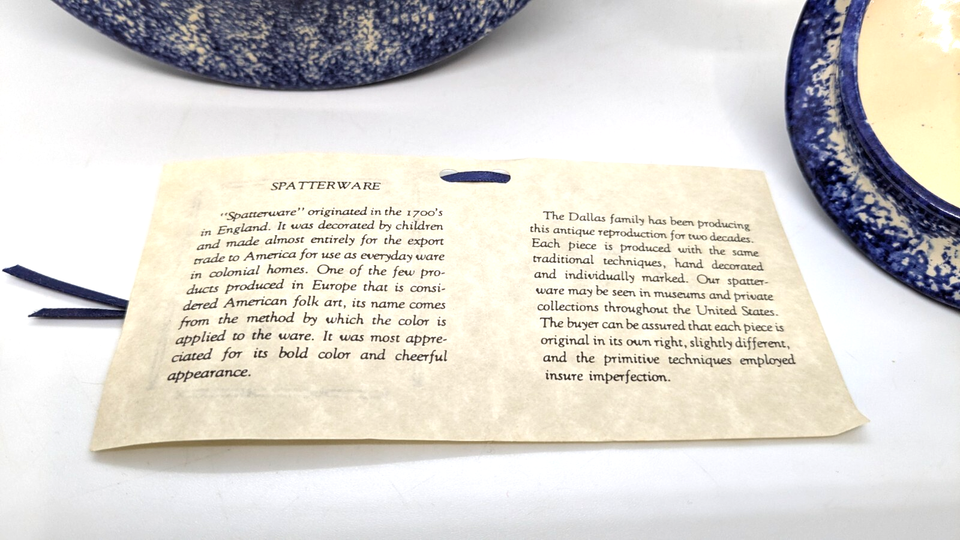 SPATTERWARE
"Spatterware" originated in the 1700's
in England. It was decorated by children
and made almost entirely for the export
trade to America for use as everyday ware
in colonial homes. One of the few pro-
ducts produced in Europe that is consi-
dered American folk art, its name comes
from the method by which the color is
applied to the ware. It was most appre-
ciated for its bold color and cheerful
appearance.
The Dallas family has been producing
this antique reproduction for two decades.
Each piece is produced with the same
traditional techniques, hand decorated
and individually marked. Our spatter-
ware may be seen in museums and private
collections throughout the United States.
The buyer can be assured that each piece is
original in its own right, slightly different,
and the primitive techniques employed
insure imperfection.